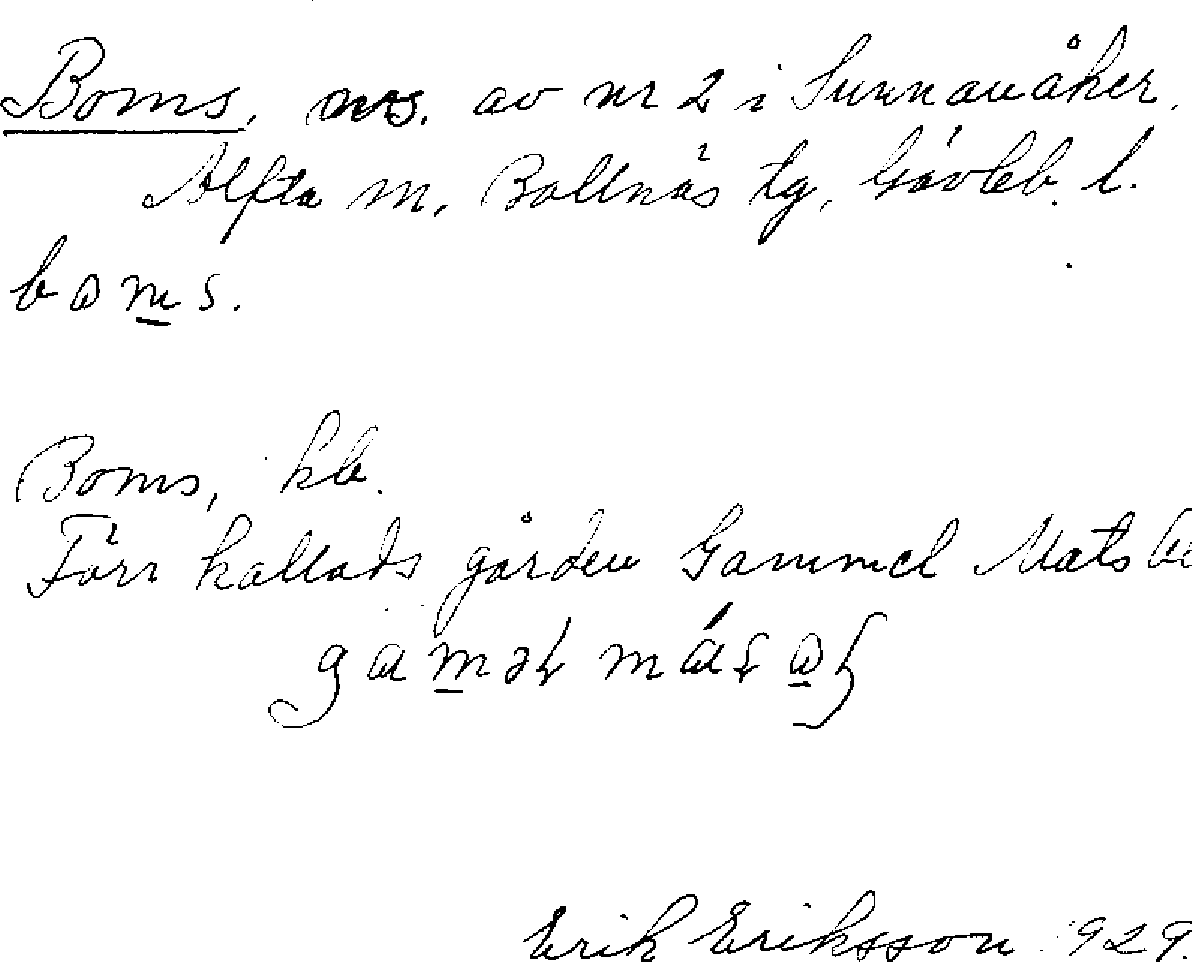 Boms, av nr 2 i Sunnanåker,
Alfta sn, Bollnäs tg, Gävleb. l.
boms.
Boms, kb.
Förr kallads gården Gammel Mats
Erik Eriksson 1929.